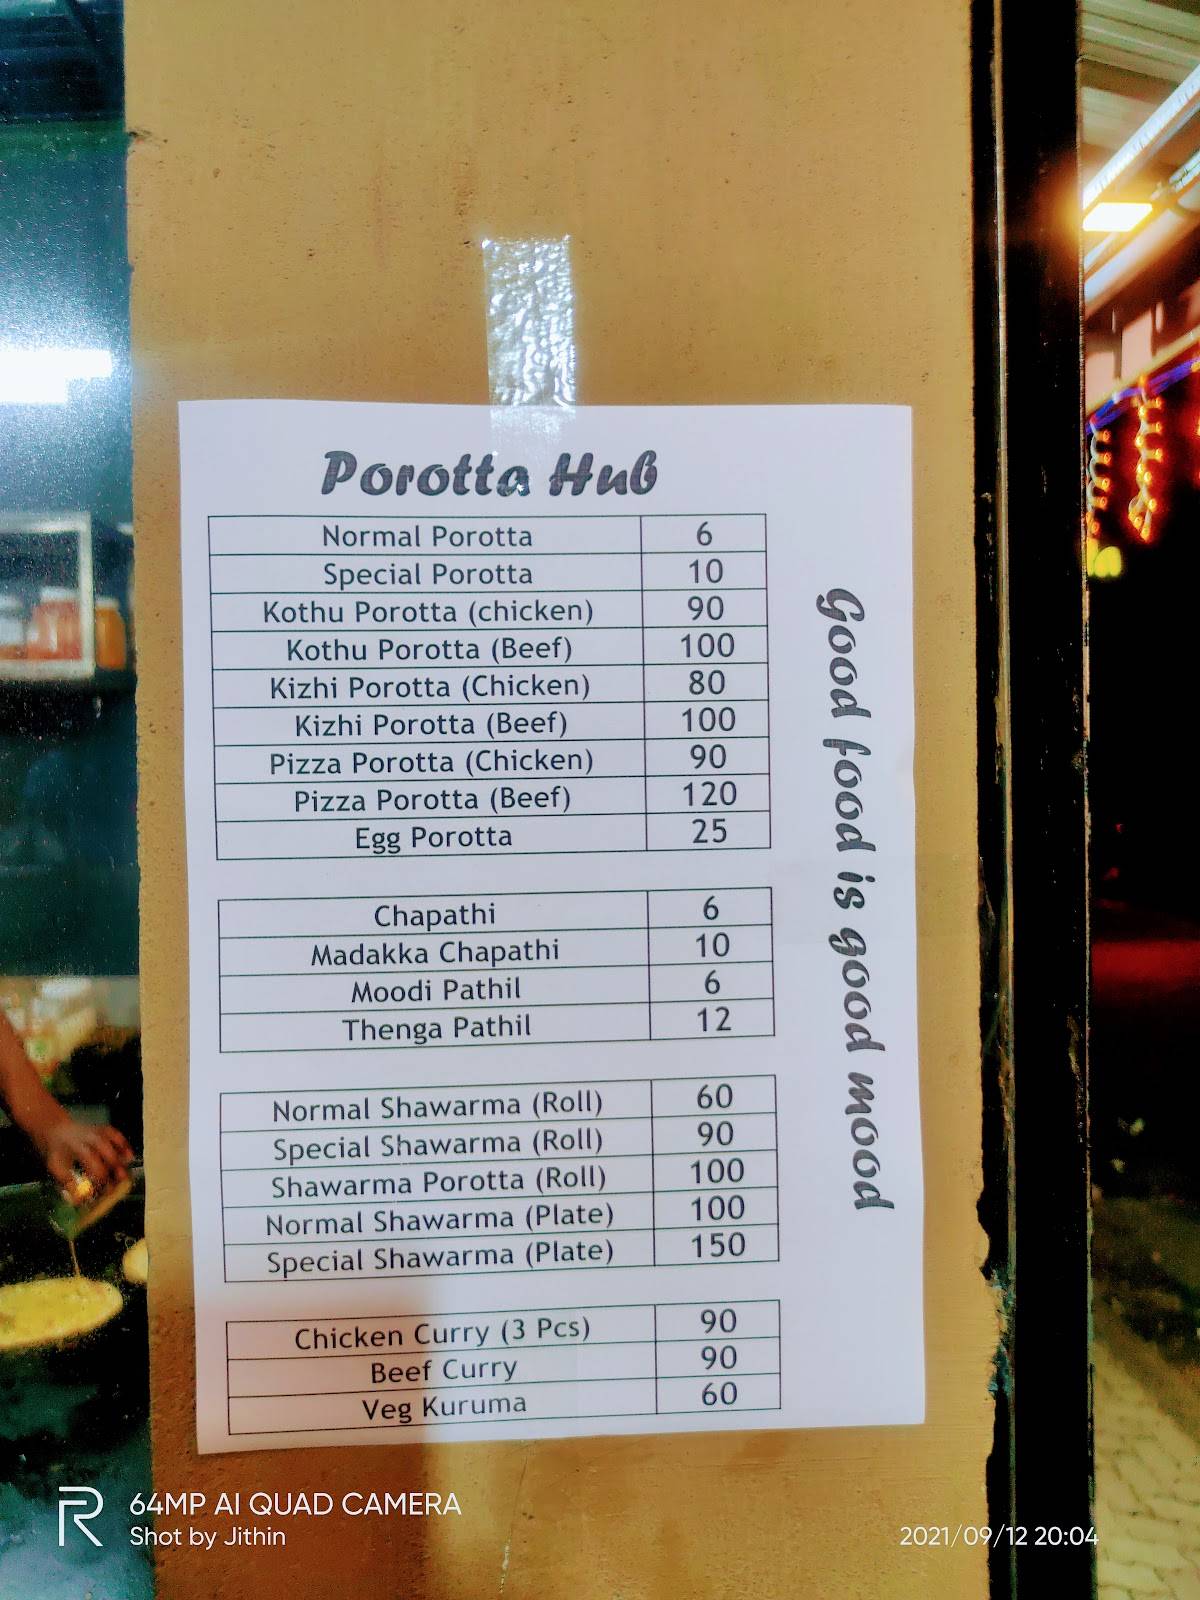 Porotta Hub
Normal Porotta 6
Special Porotta 10
Kothu Porotta (chicken) 90
Kothu Porotta (Beef) 100
Kizhi Porotta (Chicken) 80
Kizhi Porotta (Beef) 100
Pizza Porotta (Chicken) 90
Pizza Porotta (Beef) 120
Egg Porotta 25
Chapathi 6
Madakka Chapathi 10
Moodi Pathil 6
Thenga Pathil 12
Normal Shawarma (Roll) 60
Special Shawarma (Roll) 90
Shawarma Porotta (Roll) 100
Normal Shawarma (Plate) 100
Special Shawarma (Plate) 150
Chicken Curry (3 Pcs) 90
Beef Curry 90
Veg Kuruma 60
Good food is good mood
64MP AI QUAD CAMERA
Shot by Jithin
2021/09/12 20:04